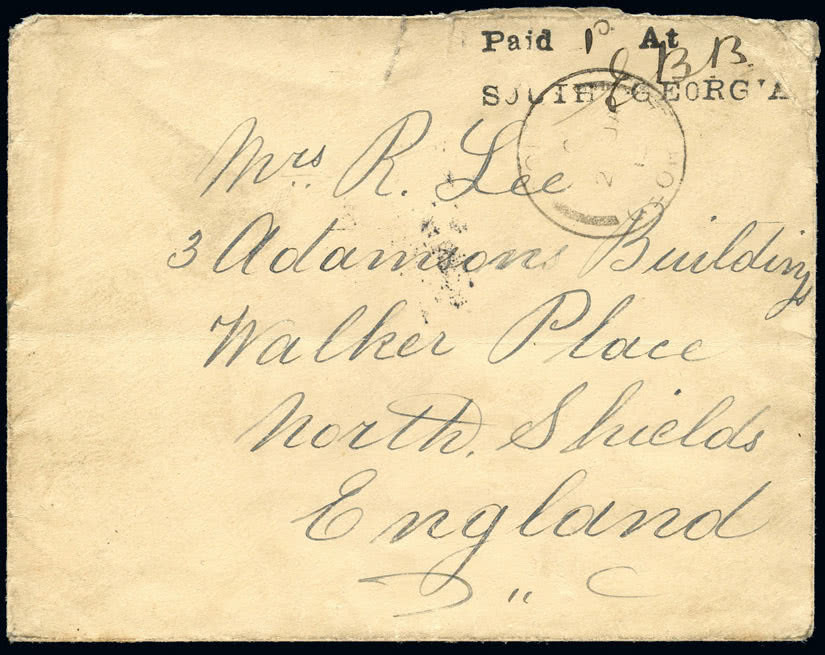 Paid 1d. At
E B B.
SOUTH GEORGIA
Mrs R. Lee
3 Adamsons Buildings
Walker Place
North Shields
England